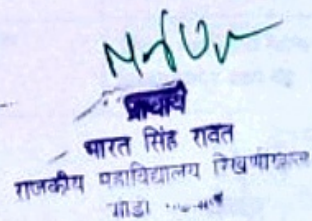 प्राचार्य
भारत सिंह रावत
राजकीय महाविद्यालय रिखणीखाल